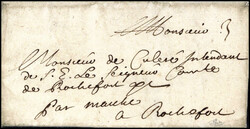 Monsieur
Monsieur de Culere Intendant
de S. E. Le Seigneur Comte
de Rochefort
Par marche
a Rochefort